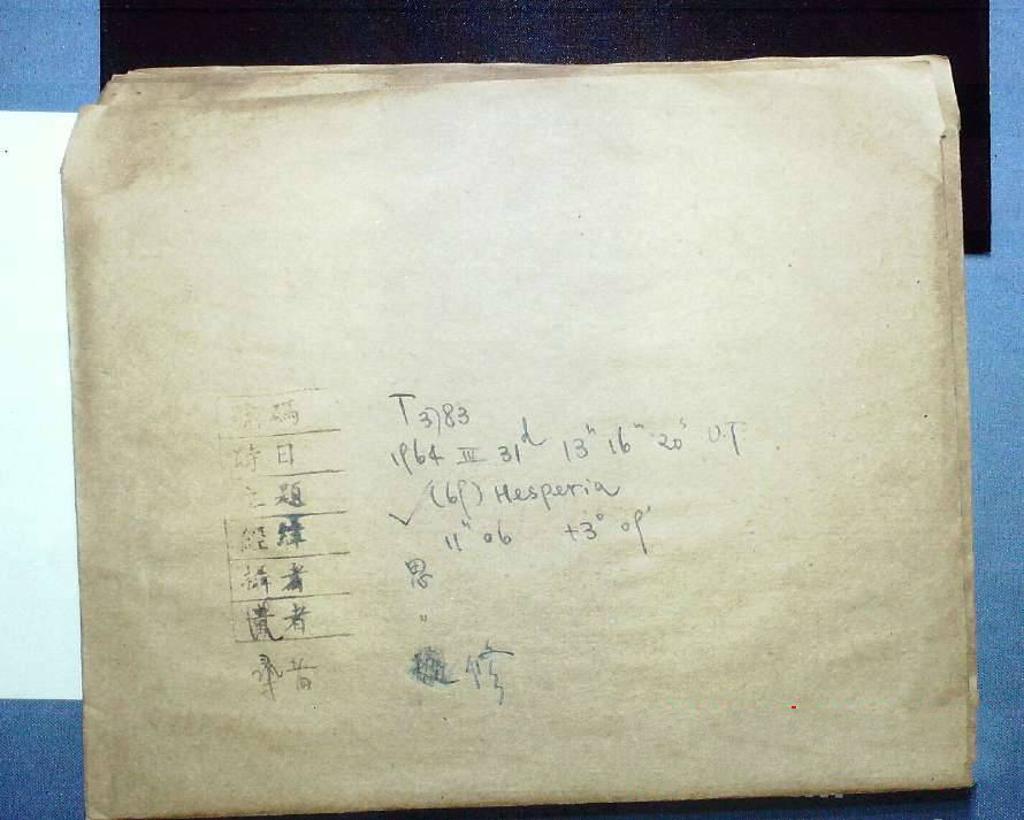 號碼 T 3783
時日 1964 III 31d 13h 16m 20s U.T.
主題 ✓ (69) Hesperia
經緯 11h 06 +3° 09'
攝者 思
"
修